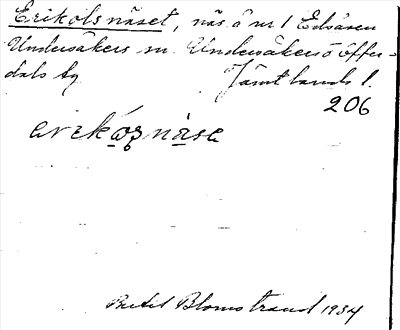 Erikolsnäset, näs å nr 1 Edsåsen
Undersåkers sn. Undersåkers o offer-
dals tg Jämtlands l.
206
erikósnäsa
Bertil Blomstrand 1934